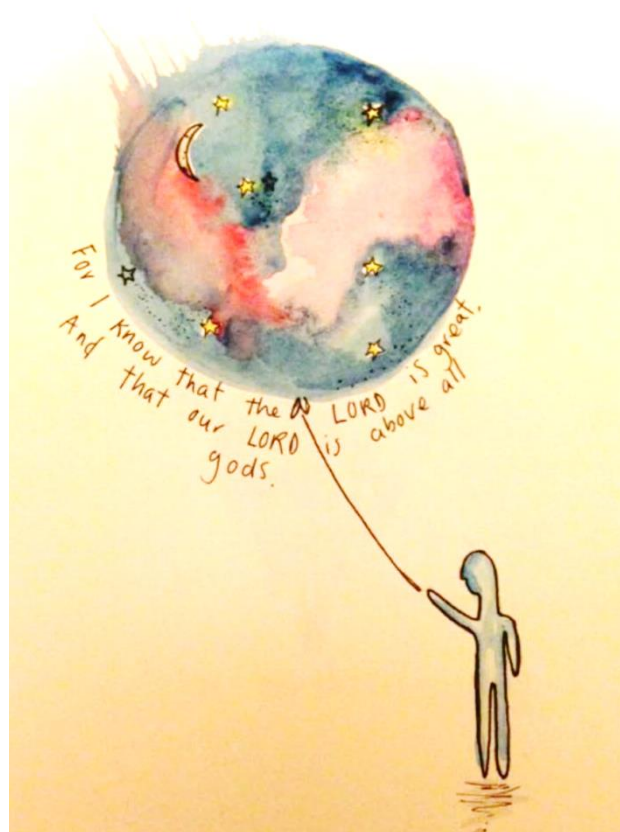 For I know that the LORD is great,
And that our LORD is above all
gods.